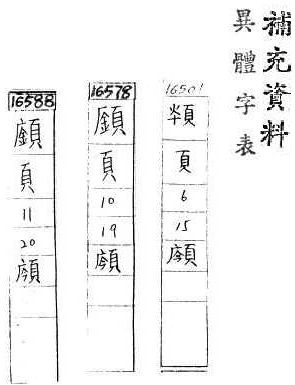 補充資料
異體字表
16501
頁
6
15
16578
頁
10
19
16588
頁
11
20